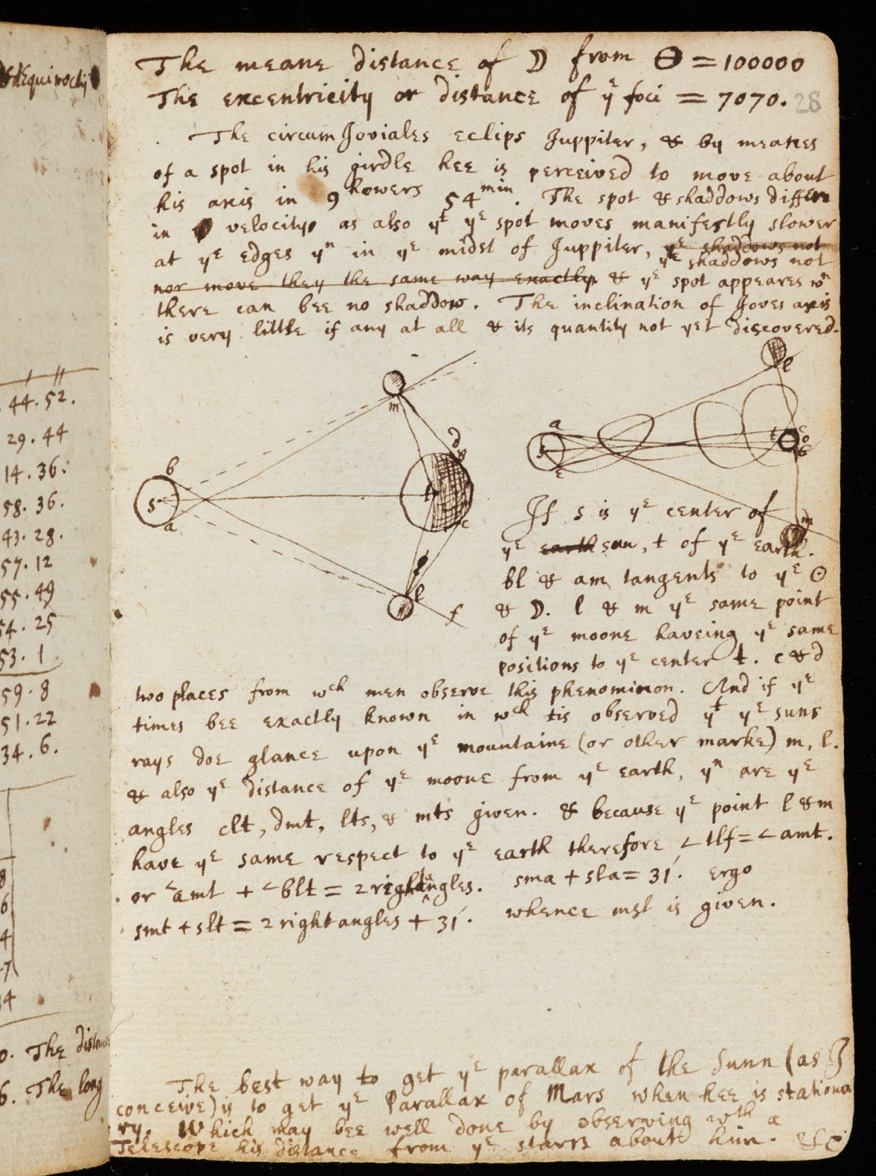 The meane distance of ☽ from ⊖ = 100000
The excentricity or distance of yͤ foci = 7070. 28
The circumJoviales eclips Juppiter, & by meanes
of a spot in his girdle hee is perceived to move about
his axis in 9 howers 54 min. The spot & shaddows differ
in velocity as also yᵗ yᵉ spot moves manifestly slower
at yᵉ edges yⁿ in yᵉ midst of Juppiter, yᵉ shaddows not
yᵉ shaddows not
nor move they the same way exactly & yᵉ spot appeares wⁿ
there can bee no shaddow. The inclination of Joves axis
is very little if any at all & its quantity not yet discovered.
s b a m d t c l f
s a c e t c o m
If s is yᵉ center of
yᵉ earth sun, t of yᵉ earth.
bl & am tangents to yᵉ ⊙
& ☽. l & m yᵉ same point
of yᵉ moone haveing yᵉ same
positions to yᵉ center t. c & d
two places from wᶜʰ men observe this phenominon. And if yᵉ
times bee exactly known in wᶜʰ tis observed yᵗ yᵉ suns
rays doe glance upon yᵉ mountaine (or other marke) m, l.
& also yᵉ distance of yᵉ moone from yᵉ earth, yⁿ are yᵉ
angles clt, dmt, lts, & mts given. & because yᵉ point l & m
have yᵉ same respect to yᵉ earth therefore ∠tlf = ∠amt.
or ∠amt + ∠blt = 2 right angles. sma + sla = 31′. ergo
smt + slt = 2 right angles + 31′. whence msl is given.
The best way to get yᵉ parallax of the Sunn (as I
conceive) is to get yᵉ Parallax of Mars when hee is stationa
ry. Which may bee well done by observing wᵗʰ a
Telescope his distance from yᵉ starrs about him. &c
44.52.
29.44
14.36.
58.36.
43.28.
57.12
55.49
54.25
53.1
59.8
51.22
34.6.
The distan
6. The long